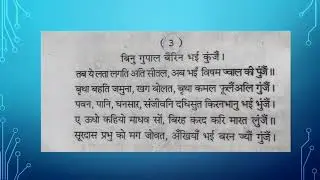 ( 3 )
बिनु गुपाल बैरिन भई कुंजैं।
तब ये लता लगति अति सीतल, अब भईं विषम ज्वाल की पुंजैं॥
बृथा बहति जमुना, खग बोलत, बृथा कमल फूलैं अलि गुंजैं।
पवन, पानि, घनसार, संजीवनि दधिसुत किरनभानु भईं भुंजैं॥
ए ऊधो कहियो माधव सों, बिरह करद करि मारत लुंजैं॥
सूरदास प्रभु को मग जोवत, अँखियाँ भईं बरन ज्यौं गुंजैं॥